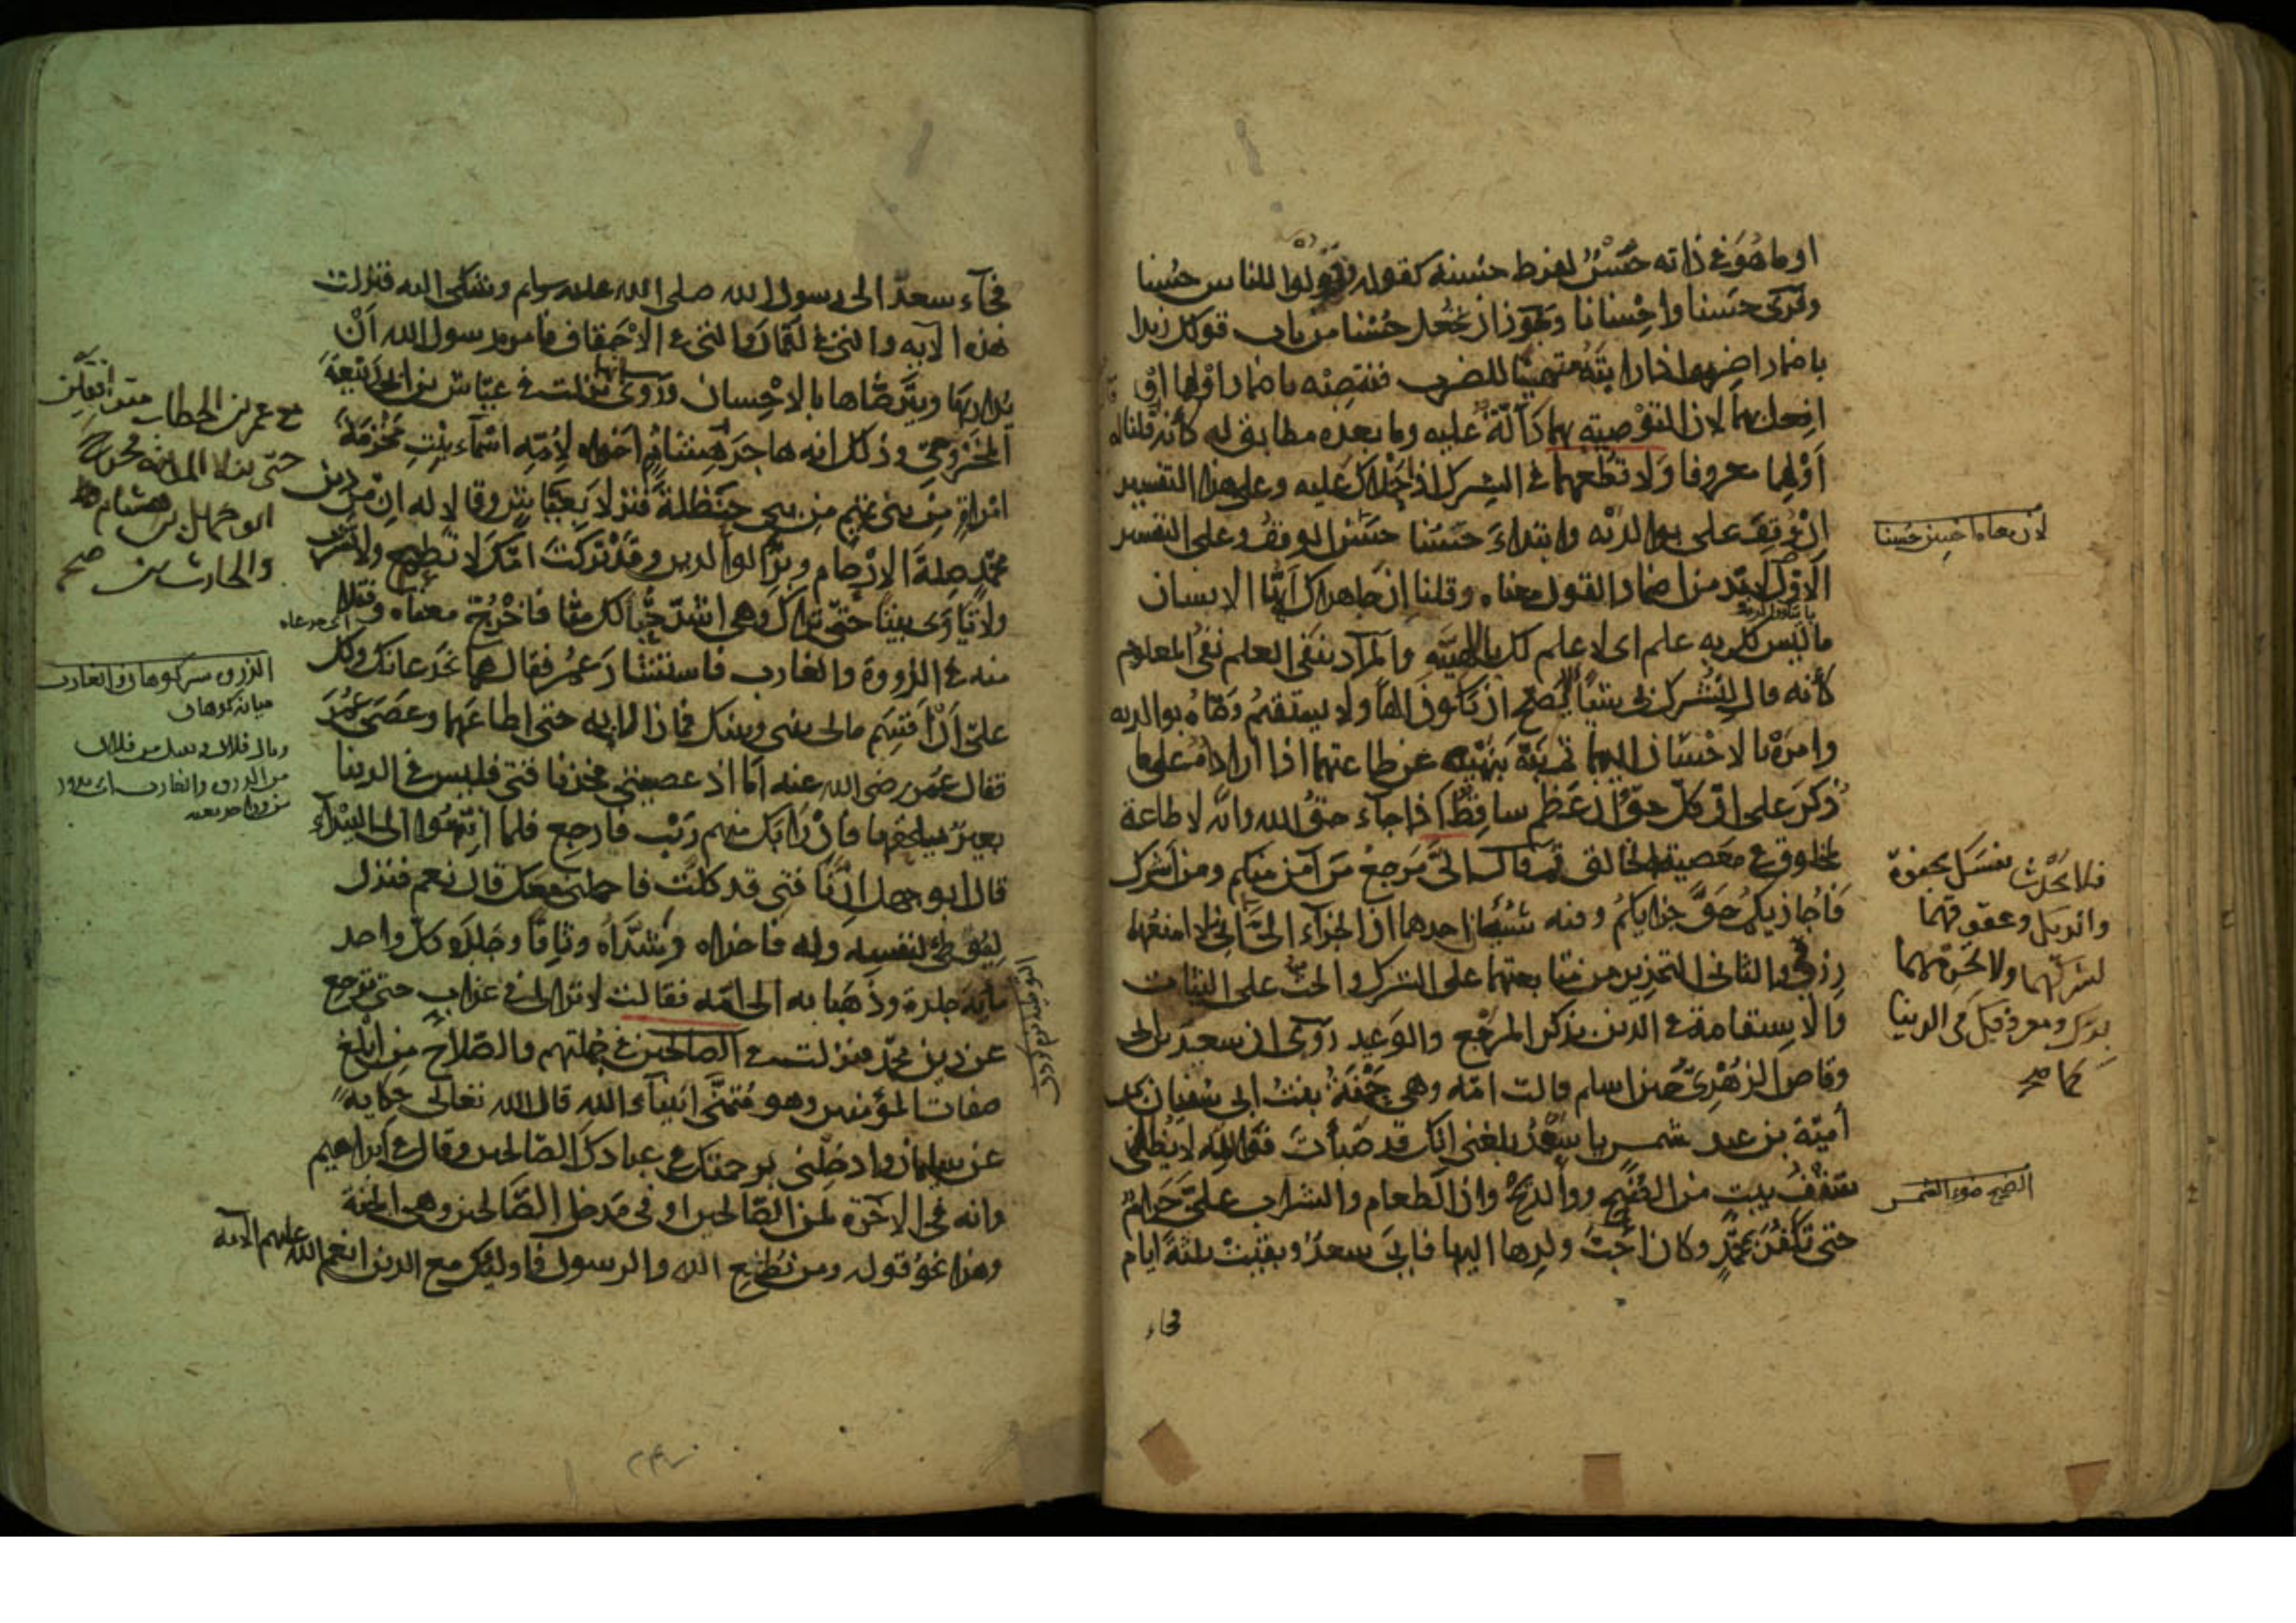 او ما هُوَ في ذاته حُسْنٌ لفرط حسنه كقوله وقولوا للناس حُسْنا
وقرئ حَسَنا واِحْسانا ويجوز ان يُجْعل حُسْنا من باب قولك زيدا
باضمار اضرب اذا رايته مُتهيّئا للضرب فتنصبه باضمار اَوْلِهما او
افعل بهما لان التَّوْصِية بهما دَالّةٌ عليه وما بعده مطابق له كأنه قلنا له
اَوْلِهما معروفا ولا تُطعهما في الشرك اذا حملاك عليه وعلى هذا التفسير
اِنْ وُقِفَ على بوالديْه وابتداءَ حَسَنا حَسُنَ الوقفُ وعلى التفسير
الاوّل لابدّ من اضمار القول معناه وقلنا ان جاهداك ايّها الانسان
ما ليس لك به علم اى لا علم لك بالٰهيّته والمراد بنفى العلم نفىُ المعلوم
كأنه قال لتشرك بى شيئا لا يصحّ ان يكون الٰهاً ولا يستقيمُ وصّاه بوالديه
وامرَهُ بالاحسان اليهما ثم نبّه بنهْيه عن طاعتهما اذا اراداه على ما
ذُكرَ على انّ كلّ حقٍّ ان عَظم ساقِطٌ اذا جاء حقُّ الله وانّه لا طاعة
لمخلوق في مَعصية الخالق ثم قال الىّ مَرجعُ مَن آمن منكم ومن اشرك
فَاُجازيكم حقَّ جزايكمُ وفيه شيْئان احدهما ان الجزاء الىَّ اى فلا امنعُهما
رزقى والثانى التحذير من متابعتهما على الشرك والحث على الثبات
والاستقامة في الدين بذكر المَرجع والوعيد رُوى ان سعد بن ابى
وقاص الزُهْرىّ حين اسلم قالت امّه وهى حَمْنَةُ بنتُ ابى سُفيان بن
اُميّة بن عبد شمس يا سَعْدُ بلغنى انك قد صَبأتَ فوالله لا يُظلّنى
سَقْفُ بيتٍ من الضِّحّ والرّيح وان الطعام والشراب علىّ حَرامٌ
حتى تكْفُر بمحمّدٍ وكان احبَّ ولدها اليها فابَى سعدٌ وبقيَتْ ثلثةَ ايام
فجاء
لان معناه احسن حُسنا
فلا تُحدِّث نفسَك بجفوة
والديك وعقوقهما
لشركهما ولا تحرِمهما
بِرّك ومعروفك فى الدنيا
كما صح
الضح ضوء الشمس
فجاء سعدٌ الى رسول الله صلى الله عليه وسلم وشكى اليه فنزلت
هذه الآية والتى في لُقمانَ والتى في الاحْقاف فامره رسول الله اَنْ
يُداريَها ويترضّاها بالاحْسان ورُوىَ انها نزلت في عيّاش بن ابى رَبيعَةَ
المَخْزومىّ وذلك انه هاجر
امْراةٍ مِن بنى تميم من بنى حَنظلةَ فنزلا بعيّاش وقالا له ان من دين
محمّدٍ صِلةَ الارْحام وبرَّ الوالدين وقد تركتَ امّك لا تَطعم ولا تَشرب
ولا تأوى بيتا حتّى تراك وهى اشدّ حُبّا لك منّا فاخْرُجْ معنا وفتلا
منه في الذروة والغارب فاستشار عُمرَ فقال هما يخدعانك ولك
علىّ اَنْ اَقْسِمَ مالى بينى وبينك فما زالا به حتى اطاعَهما وعَصَى عُمَرَ
فقال عُمَر رضى الله عنه اَمّا اذ عصيتنى فخذ ناقتى فليس في الدنيا
بعيرٌ يلحقها فان رَابك منهم رَيْب فارجع فلما انتَهَوْا الى البَيْداء
قال ابو جهل اِنّ ناقتى قد كَلّتْ فاحملنى معك قال نعم فنزل
ليُوَطّئَ لنفسه وله فاخذاه وشَدَّاهُ وثاقا وجَلَدَه كلُّ واحد
مائة جلدة وذَهَبا به الى امّه فقالت لا تزال في عذابٍ حتى ترجع
عن دين محمّد فنزلت في الصالحين في جُملتهم والصّلاح من ابْلغ
صفات المؤمنين وهو مُتَمنَّى انبياء الله قال الله تعالى حكايةً
عن سليمان وادخلنى برحمتك في عبادك الصّالحين وقال في ابراهيم
وانه فى الآخرة لمن الصّالحين او فى مَدخل الصّالحين وهى الجنّة
وهذا نحوُ قوله ومن يُطِع الله والرسول فاولئك مع الذين انعم الله عليهم الآية
مع عمر بن الخطاب
حتى نزلا المدينة فخرج
ابو جهل بن هشام
والحارث بن صح